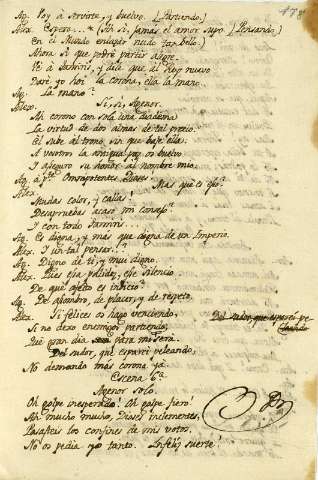 178
Ag. Voy à servirte, y buelvo. (Partiendo.)
Alex. Espera... (Ah si, jamas el amor supo (Pensando.)
En el Mundo enlazar nudo tan bello.)
Ahora si que podré partir alegre.
Ve à Tamiris, y dila que al Rey nuevo
Daré yo hoi la corona, ella la mano.
Ag. La mano?
Alex. Si, si, Agenor.
Ah corono con sola una diadema
La virtud de dos almas de tal precio.
El sube al trono, sin que baje ella:
A vosotros la antigua paz os buelvo
I aseguro su amor al nombre mio.
Ag. Omnipotentes Dioses.
Alex. Mas que es esto?
Mudas color, y callas!
Desapruebas acaso mi consejo?
I con todo Tamiris...
Ag. Es digna, y mas que digna de un Imperio.
Alex. I un tal pensar?
Ag. Digno de ti, y muy digno.
Alex. Dies esa palidez, ese silencio
De que afecto es indicio?
Ag. De asombro, de placer, y de respeto.
Alex. Si felices os hago venciendo,
Si no dexo enemigos partiendo,
Que gran dia para mi será.
Del sudor, que esparzi peleando,
No demando mas corona ya.
Escena 6ª
Agenor solo.
Oh golpe inesperado! Oh golpe fiero!
Ah mucho, mucho, Dioses inclementes,
Pasasteis los confines de mis votos.
No os pedia yo tanto. Infeliz suerte!
Del sudor, que esparzi peleando